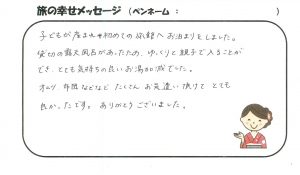 旅の幸せメッセージ（ペンネーム：　　　　）
子どもが産まれ初めての旅館へお泊まりをしました。
貸切の露天風呂があったため、ゆっくりと親子で入ることが
でき、とても気持ちの良いお湯加減でした。
オムツ、布団などなど、たくさんお気遣い頂けてとても
良かったです。ありがとうございました。